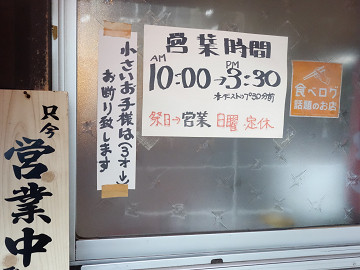 営業時間
AM 10:00→PM 3:30
オーダーストップ30分前
祭日→営業 日曜 定休
小さいお子様は(3才↓)
お断り致します
食べログ
話題のお店
只今
営業中